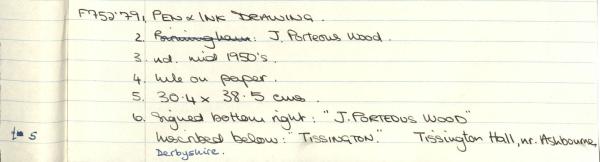 F752'79, PEN & INK DRAWING.
2. Birmingham: J. Porteous Wood.
3. nd. mid 1950's.
4. Ink on paper.
5. 30.4 x 38.5 cms.
6. Signed bottom right: "J. PORTEOUS WOOD"
to 5 Inscribed below: "TISSINGTON." Tissington Hall, nr. Ashbourne,
Derbyshire.